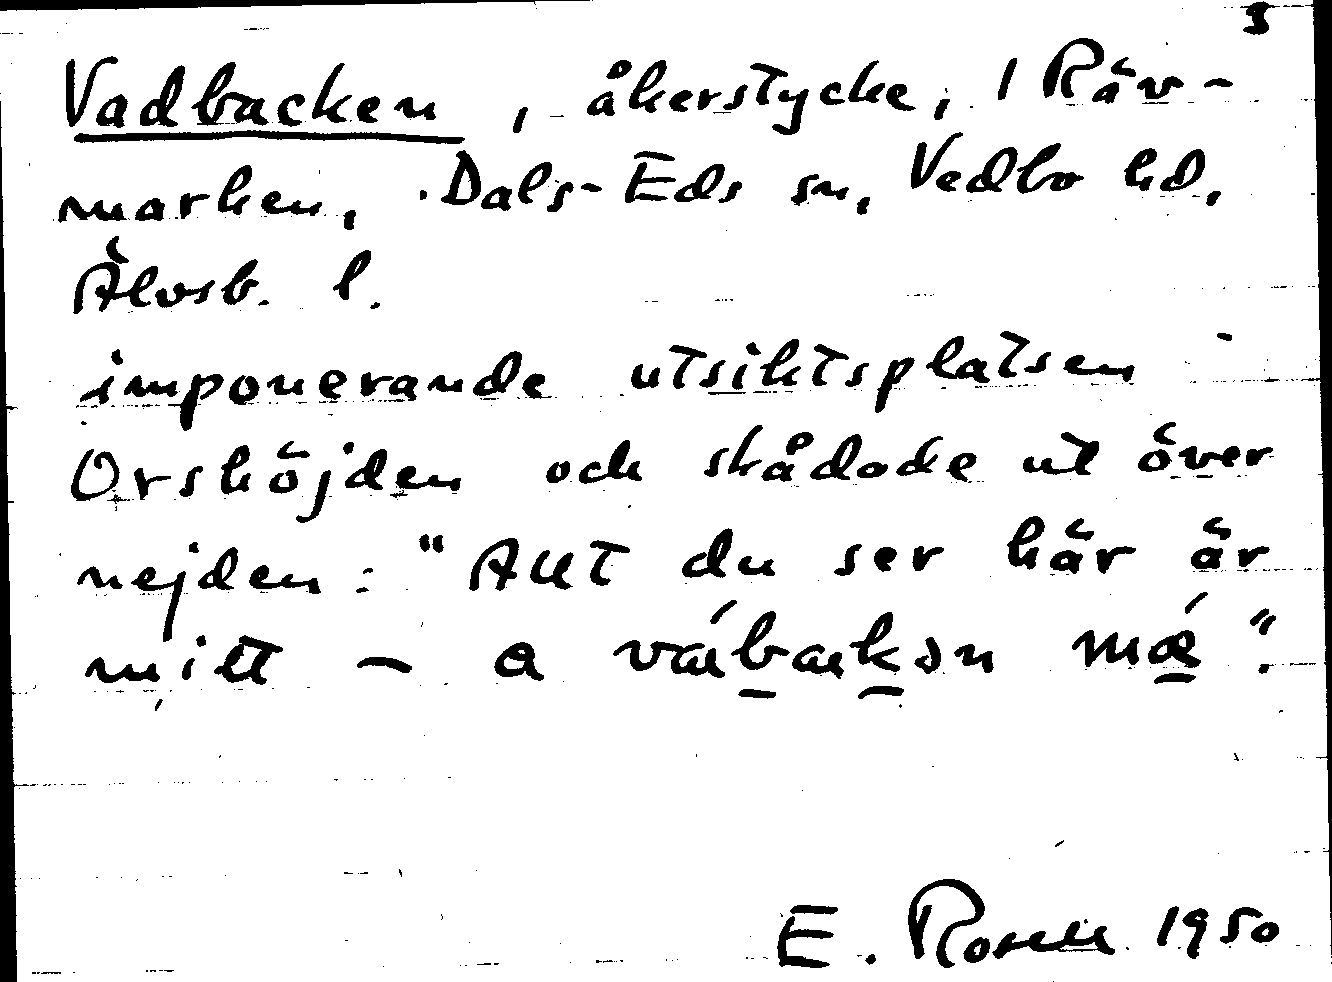 3
Vadbacken, åkerstycke, 1 Räv-
marken, Dals-Eds sn, Vedbo hd,
Älvsb. l.
imponerande utsiktsplatsen
Orshöjden och skådade ut över
nejden: "Allt du ser här är
mitt – a mæ".
E. Rosell 1950